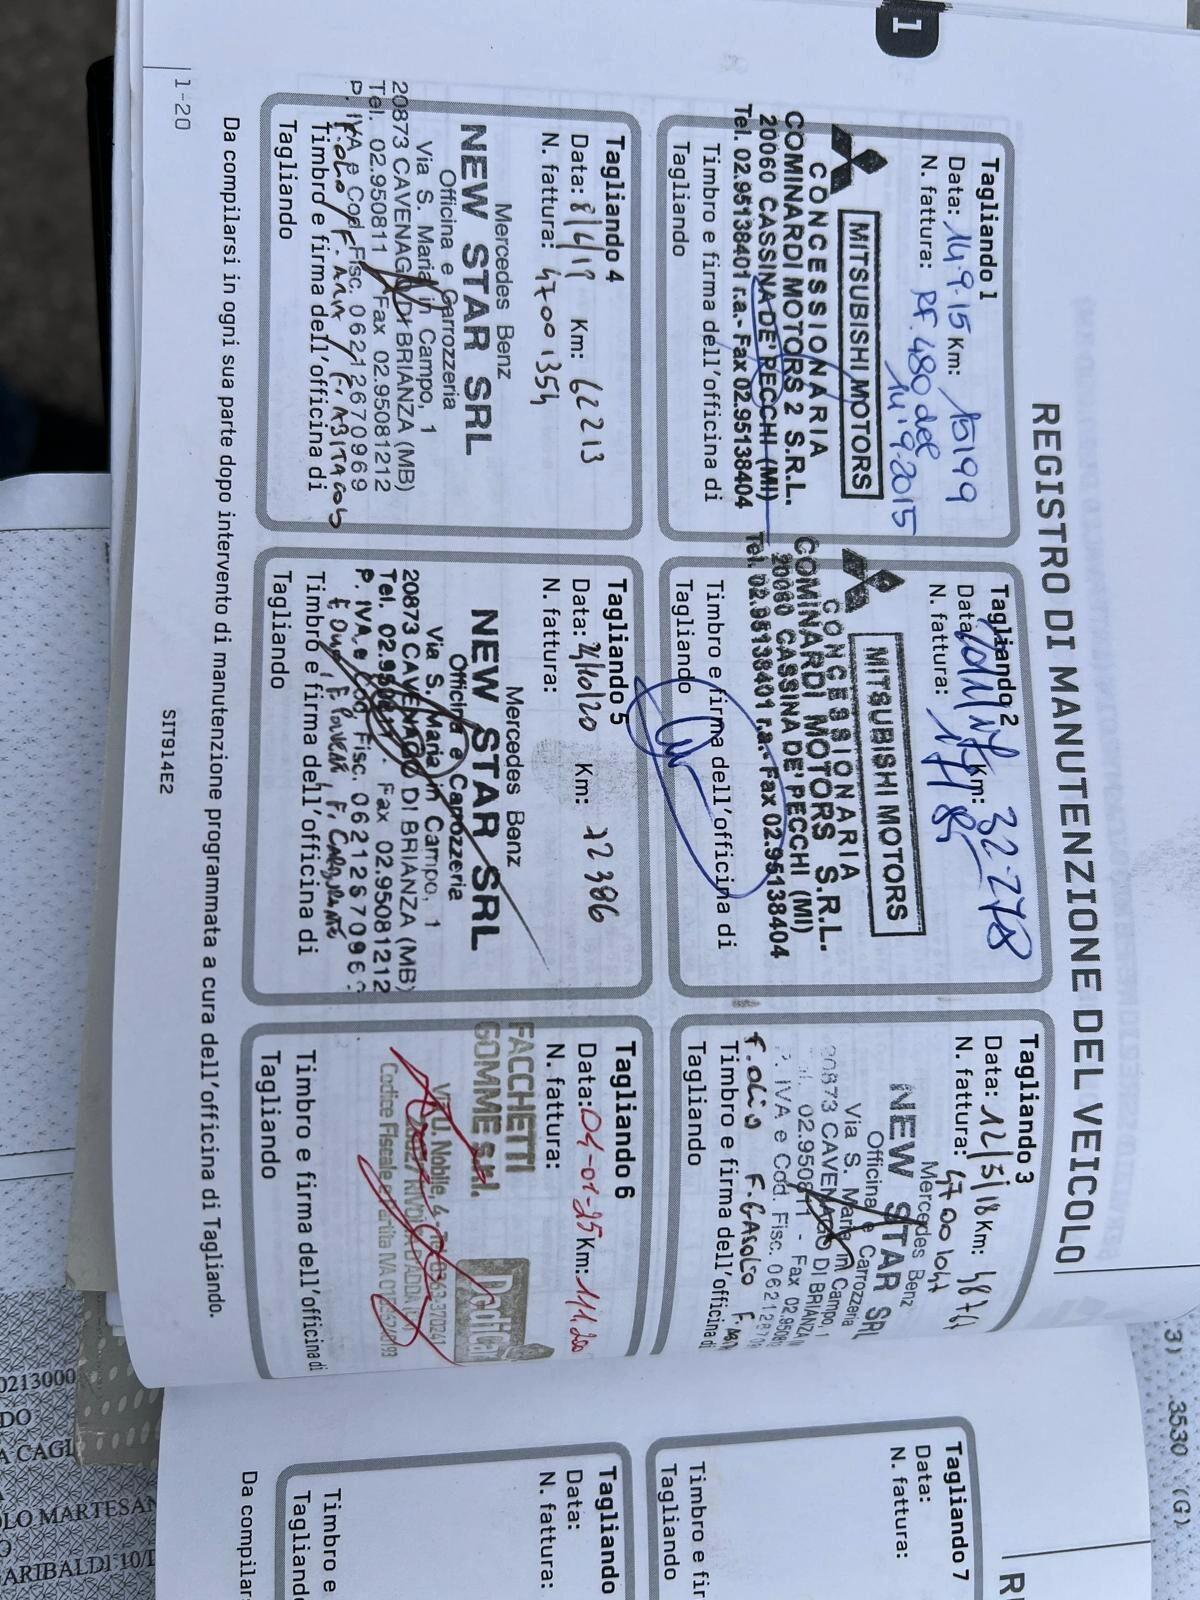 1
REGISTRO DI MANUTENZIONE DEL VEICOLO
Tagliando 1
Data: 14.9.15 Km: 15199
N. fattura: RF. 480 del
14.9.2015
MITSUBISHI MOTORS
CONCESSIONARIA
COMINARDI MOTORS 2 S.R.L.
20060 CASSINA DE' PECCHI (MI)
Tel. 02.95138401 r.a.- Fax 02.95138404
Timbro e firma dell'officina di
Tagliando
Tagliando 2
Data: Km: 32.278
N. fattura:
MITSUBISHI MOTORS
CONCESSIONARIA
COMINARDI MOTORS S.R.L.
20060 CASSINA DE' PECCHI (MI)
Tel. 02.95138401 r.a.- Fax 02.95138404
Timbro e firma dell'officina di
Tagliando
Tagliando 3
Data: 12/3/18 Km:
N. fattura: 4700
Mercedes Benz
NEW STAR SRL
Officina e Carrozzeria
Via S. Maria in Campo, 1
20873 CAVENAGO DI BRIANZA
02.950811 - Fax 02.9508
P. IVA e Cod. Fisc.
Timbro e firma dell'officina di
Tagliando
Tagliando 4
Data: Km: 62213
N. fattura: 47001354
Mercedes Benz
NEW STAR SRL
Officina e Carrozzeria
Via S. Maria in Campo, 1
20873 CAVENAGO DI BRIANZA (MB)
Tel. 02.950811 Fax 02.95081212
P. IVA e Cod. Fisc. 06212670969
Timbro e firma dell'officina di
Tagliando
Tagliando 5
Data: Km: 72386
N. fattura:
Mercedes Benz
NEW STAR SRL
Officina e Carrozzeria
Via S. Maria in Campo, 1
20873 CAVENAGO DI BRIANZA (MB)
Tel. 02.950811 - Fax 02.95081212
P. IVA e Cod. Fisc. 0621267096
Timbro e firma dell'officina di
Tagliando
Tagliando 6
Data: 04-01-25 Km: 111.200
N. fattura:
FACCHETTI
GOMME S.r.l.
Via U. Nobile, 4 - 0363.370241
Codice Fiscale e Partita IVA
Timbro e firma dell'officina di
Tagliando
Da compilarsi in ogni sua parte dopo intervento di manutenzione programmata a cura dell'officina di Tagliando.
1-20
SIT914E2
Tagliando 7
Data:
N. fattura:
Timbro e fir
Tagliando
Tagliando
Data:
N. fattura:
Timbro e
Tagliand
Da compilar
3) .3530 (G)
0213000
DO
A CAGL
OLO MARTESAN
GARIBALDI 10/